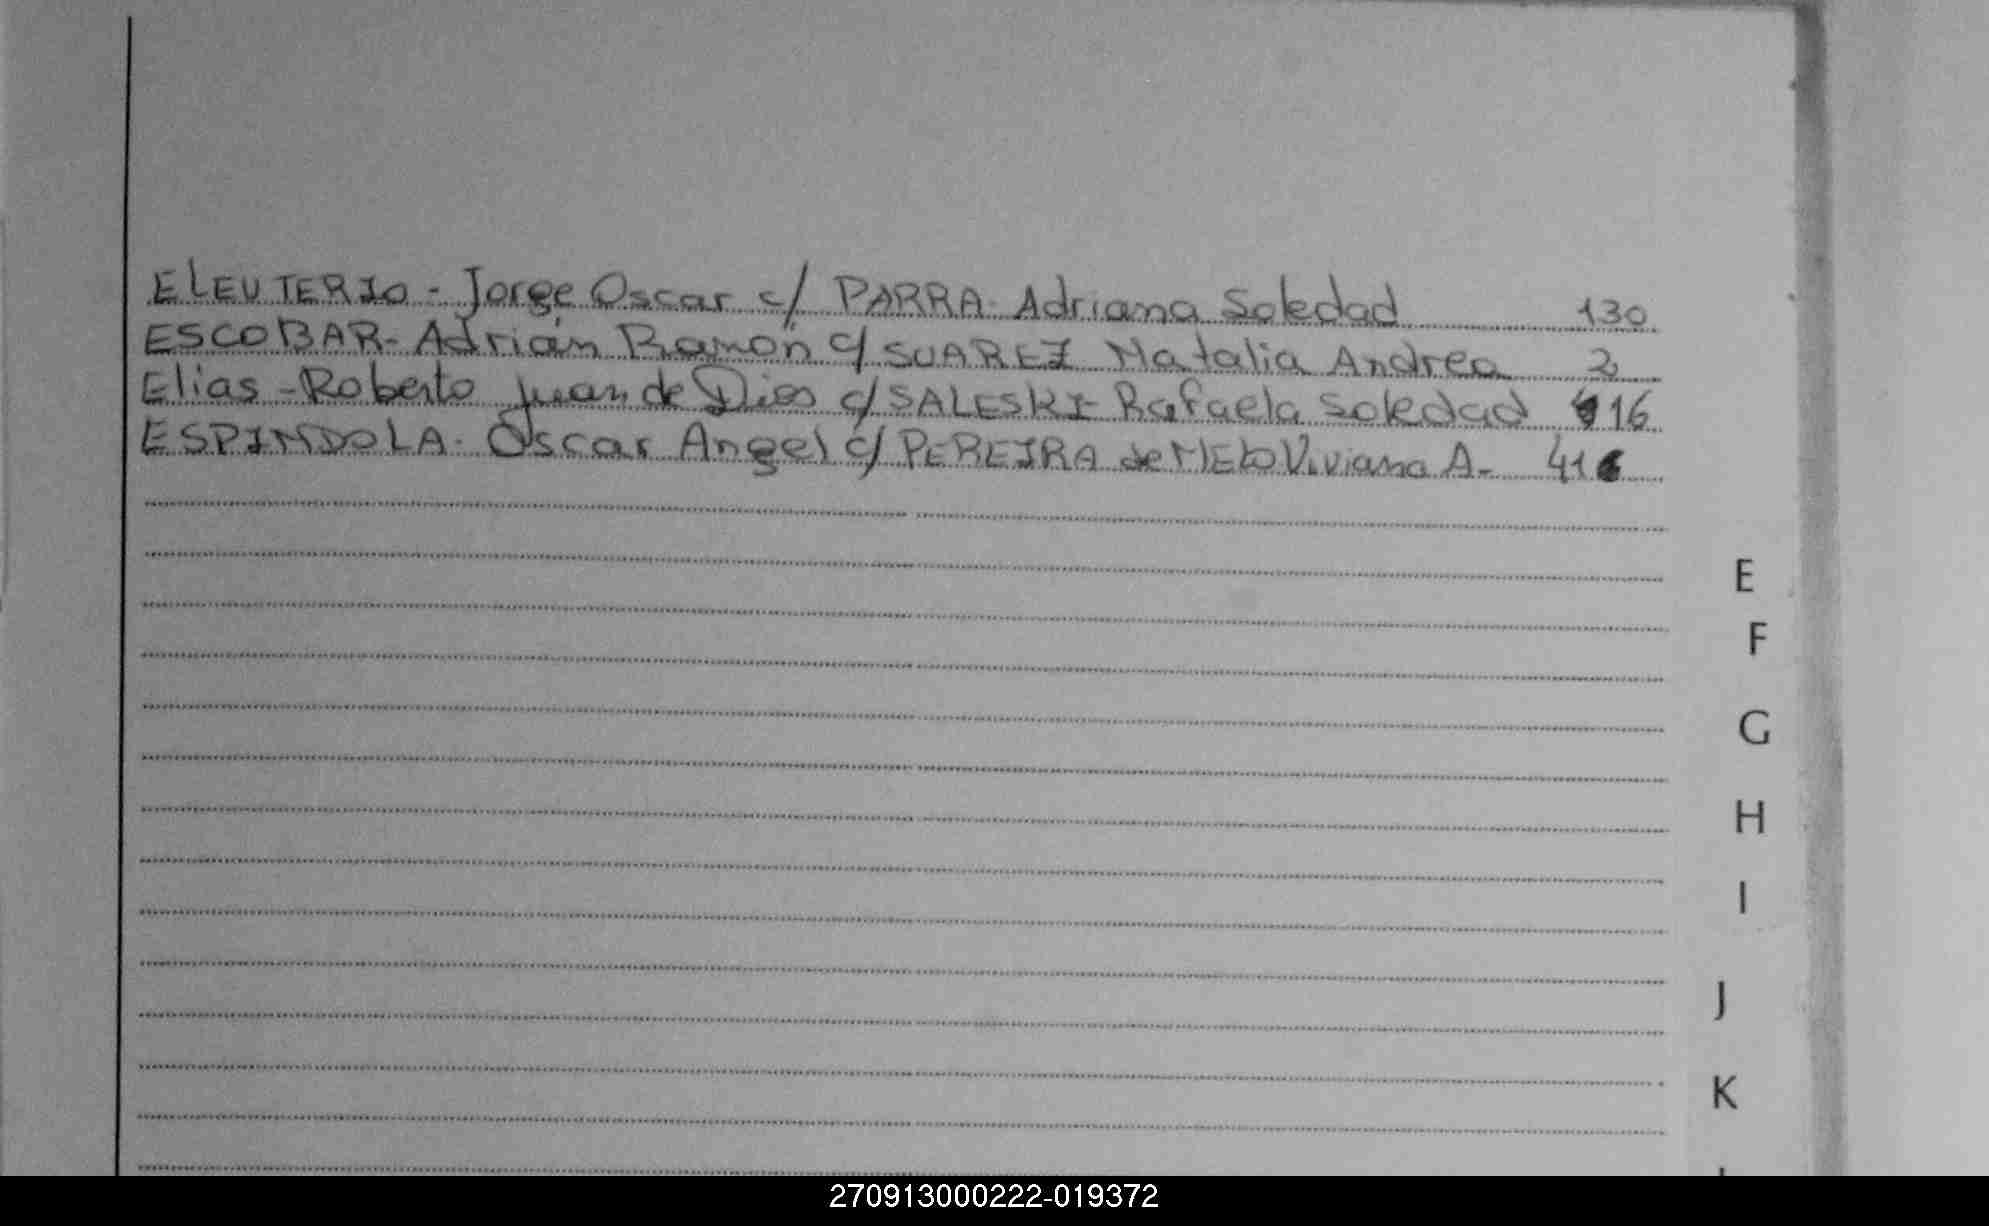 ELEUTERIO - Jorge Oscar c/ PARRA Adriana Soledad 130
ESCOBAR - Adrián Ramón c/ SUAREZ Natalia Andrea 2
Elias - Roberto Juan de Dios c/ SALESKI Rafaela Soledad 16
ESPINDOLA - Oscar Angel c/ PEREIRA de MELO Viviana A.
E
F
G
H
I
J
K
270913000222-019372